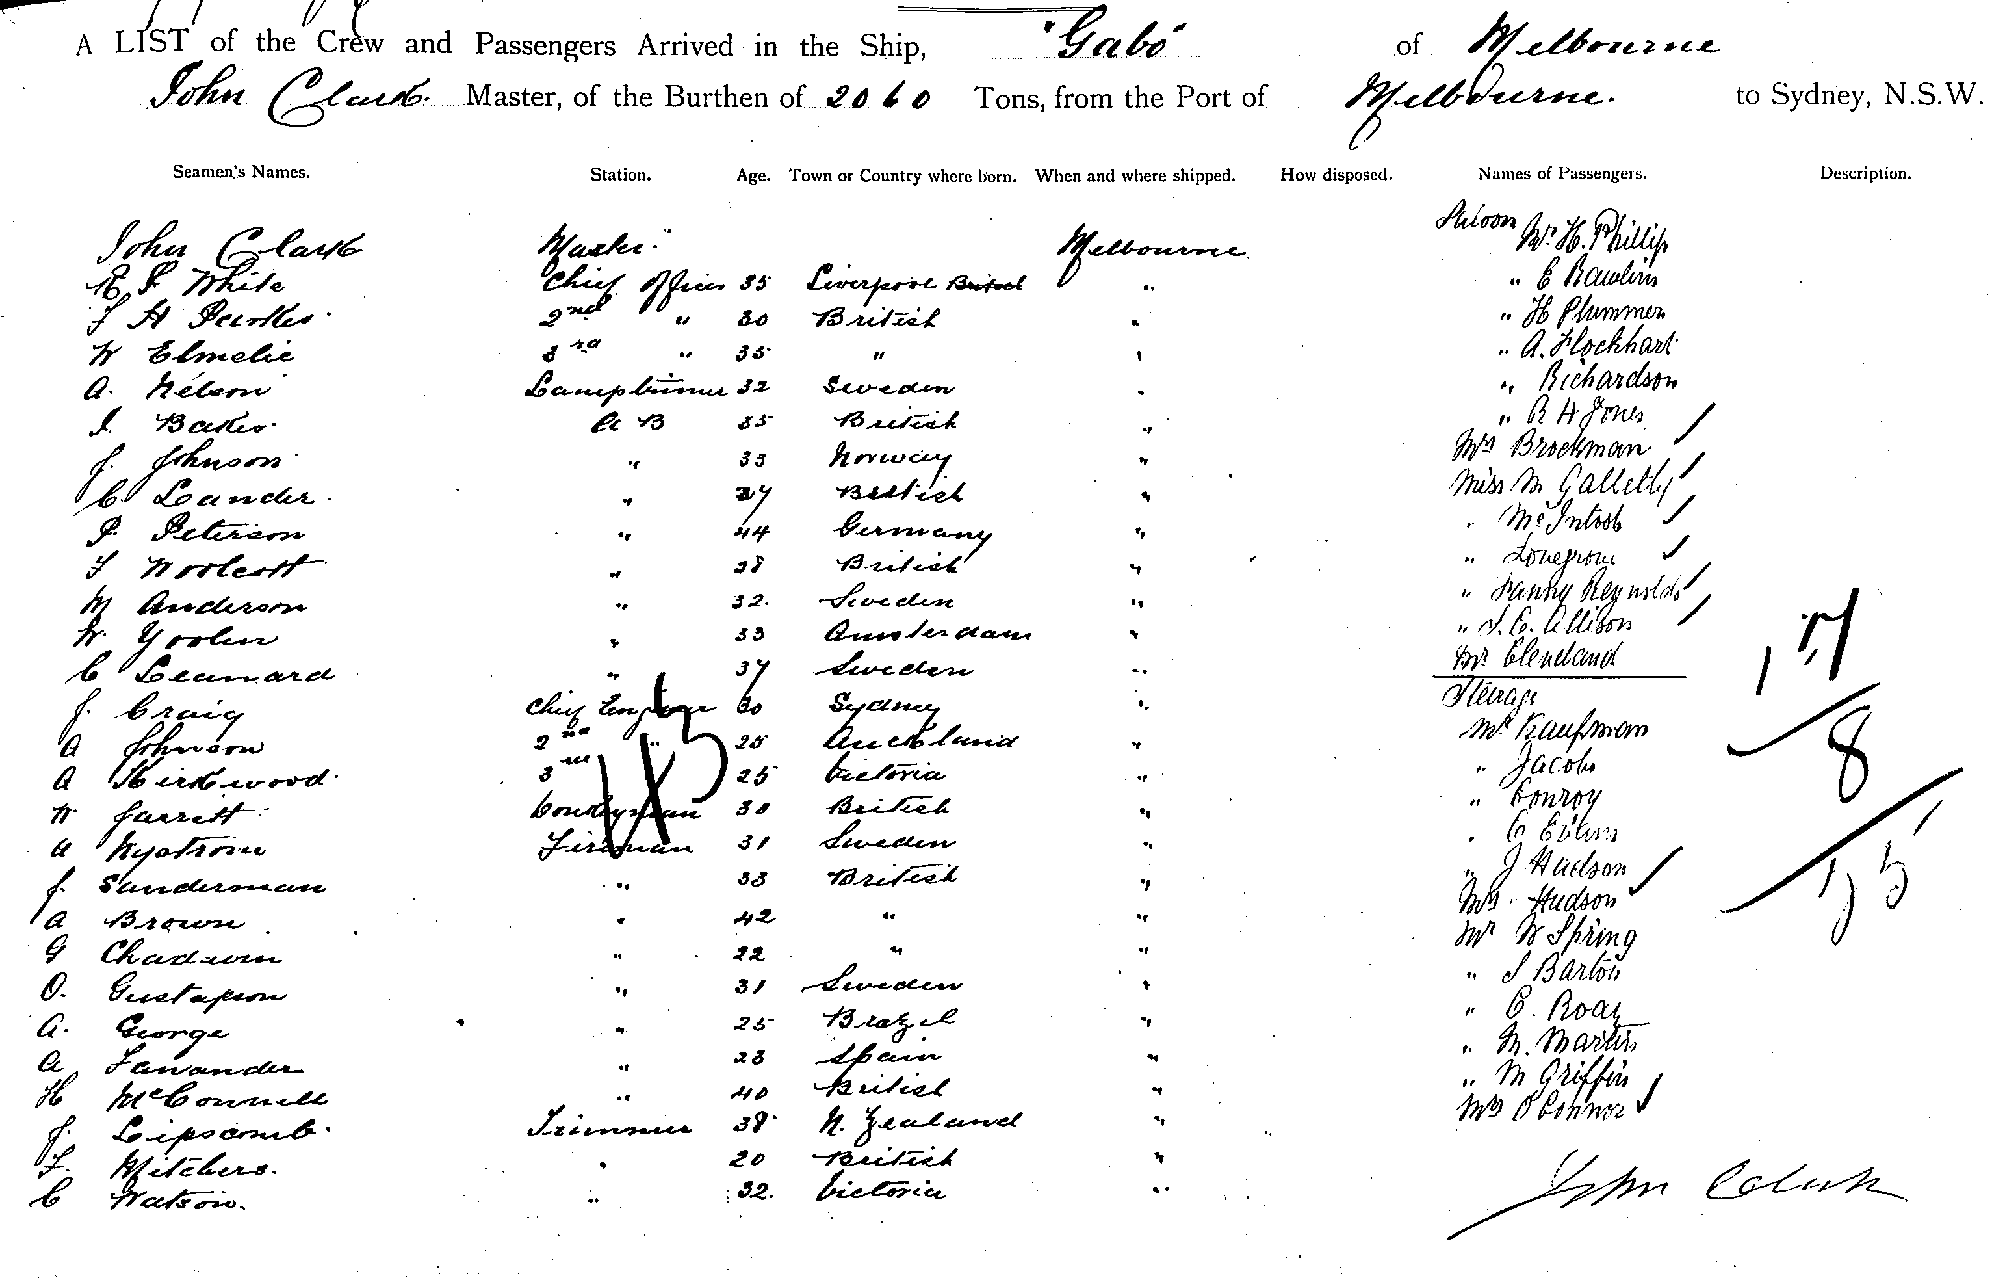 A LIST of the Crew and Passengers Arrived in the Ship, "Gabo" of Melbourne
John Clark. Master, of the Burthen of 2060 Tons, from the Port of Melbourne. to Sydney, N.S.W.
Seamen's Names. Station. Age. Town or Country where born. When and where shipped. How disposed. Names of Passengers. Description.
John Clark Master. Melbourne Saloon Mr. H. Phillip
White Chief Officer 35 Liverpool British " " E Rawlins
2nd " 30 British " " H Plummer
W Elmslie 3rd " 35 " " " A. Flockhart
A. Nelson Lamptrimmer 32 Sweden " " Richardson
Baker. A B 35 British " " R H Jones
J. Johnson " 33 Norway " Mrs Brockman
C Leander. " 27 British " Miss M Galletly
P. Peterson " 44 Germany " " McIntosh
F Woolcott " 28 British " " Lovegrove
M Anderson " 32. Sweden " " Fanny Reynolds
W " 33 Amsterdam " " Allison
C Leanard " 37 Sweden " Mr Cleveland
J. Craig Chief Engineer 30 Sydney " Steerage
A Johnson 2nd " 25 Auckland " Mr Kaufman
A Kirkwood. 3rd 25 Victoria " " Jacobs
W Jarrett Donkeyman 30 British " " Conroy
A Nystrom Fireman 31 Sweden " "
J. Sanderman " 33 British " " J Hudson
A Brown " 42 " " Mrs. Hudson
G Chadwin " 22 " " Mr W Spring
O. Gustafson " 31 Sweden " " S Barton
A. George " 25 Brazel " " C. Roay
A " 23 Spain " " M. Martin
H McConnell " 40 British " " M Griffin
J. Lipscomb. Trimmer 38 N. Zealand " Mrs O'Connor
F. Mitchers. " 20 British "
C Watson. " 32. Victoria "
John Clark
43
17
8